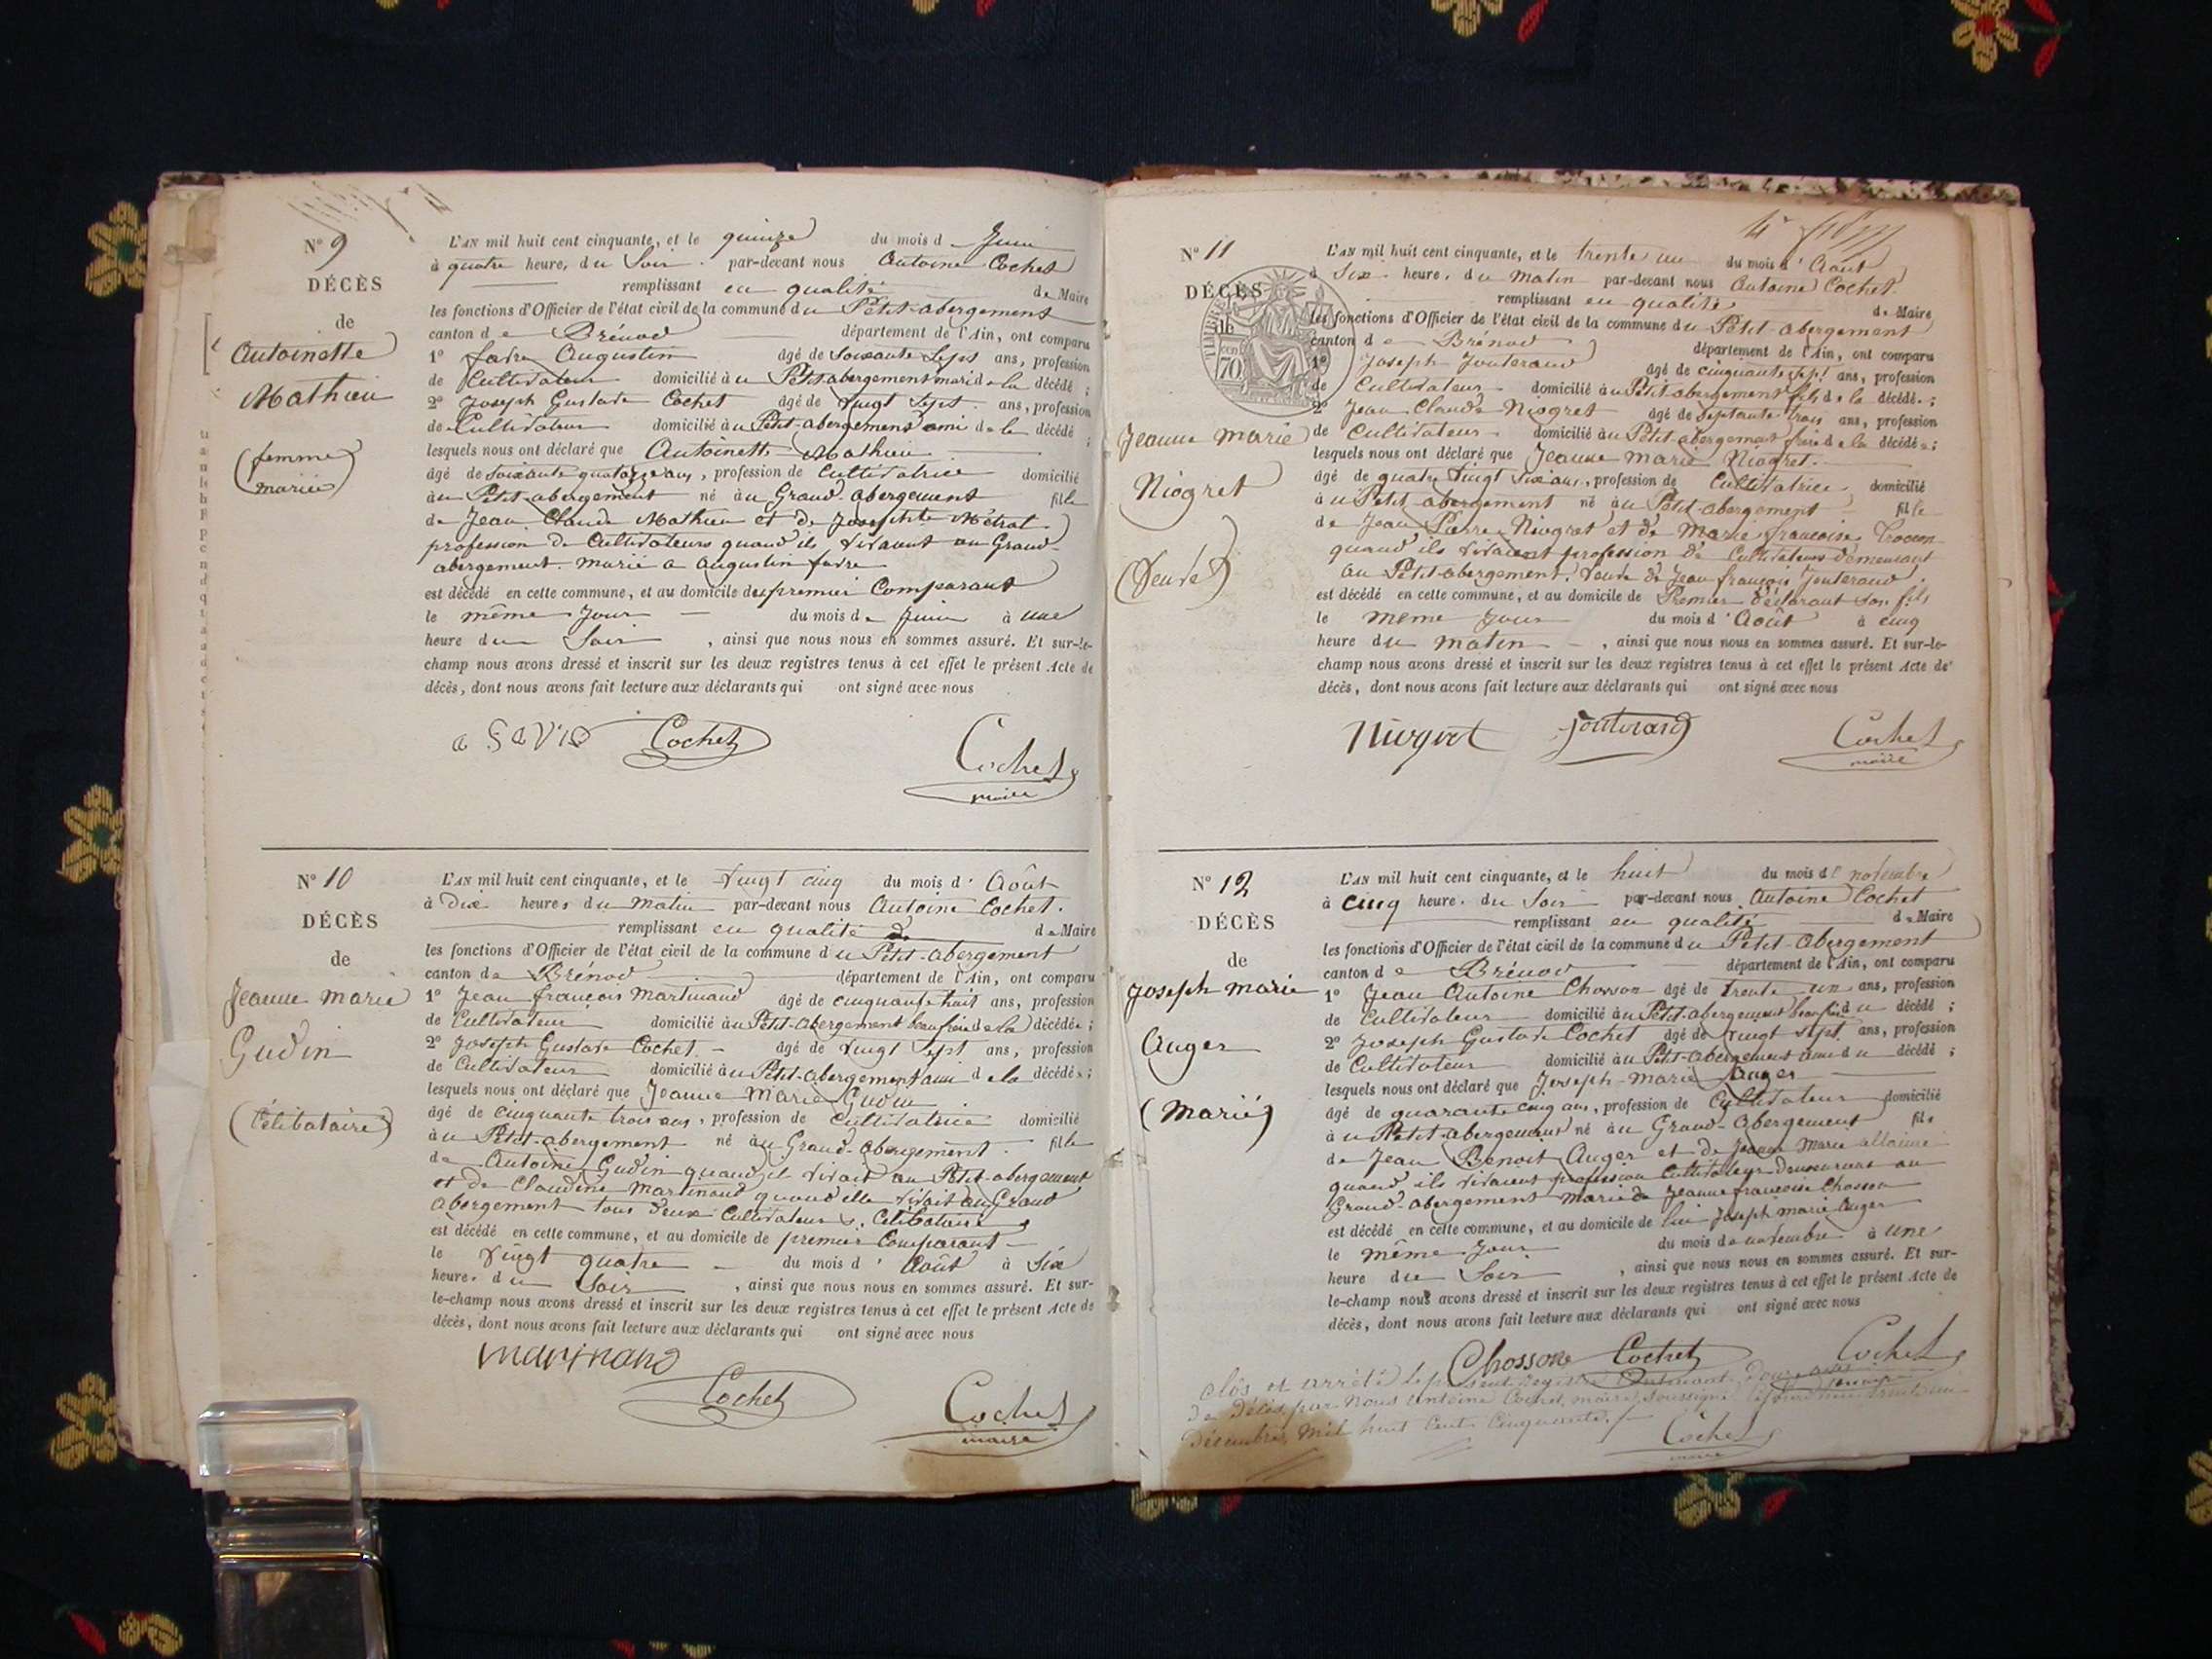 N° 9
DÉCÈS
de
Antoinette
Mathieu
(femme
mariée)
L'AN mil huit cent cinquante, et le quinze du mois d Juin
à quatre heure, du Soir par-devant nous Antoine Cochet
remplissant en qualité de Maire
les fonctions d'Officier de l'état civil de la commune du Petit-abergement
canton de Brénod département de l'Ain, ont comparu
1° favre Augustin âgé de Soixante Sept ans, profession
de Cultivateur domicilié au Petit-abergement mari de la décédé ;
2° Joseph Gustave Cochet âgé de Vingt Sept ans, profession
de Cultivateur domicilié au Petit-abergement ami de la décédé ;
lesquels nous ont déclaré que Antoinette Mathieu
âgé de Soixante quatorze ans, profession de Cultivatrice domicilié
au Petit-abergement né au Grand-Abergement fille
de Jean Claude Mathieu et de Josephte Métral
profession de Cultivateurs quand ils vivaient au Grand-
abergement. mariée a Augustin favre
est décédé en cette commune, et au domicile du premier Comparant
le même Jour du mois de Juin à une
heure du Soir , ainsi que nous nous en sommes assuré. Et sur-le-
champ nous avons dressé et inscrit sur les deux registres tenus à cet effet le présent Acte de
décès, dont nous avons fait lecture aux déclarants qui ont signé avec nous
Cochet
Cochet
maire
N° 10
DÉCÈS
de
Jeanne Marie
Gudin
(Célibataire)
L'AN mil huit cent cinquante, et le Vingt cinq du mois d' Août
à Dix heures du Matin par-devant nous Antoine Cochet.
remplissant en qualité de Maire
les fonctions d'Officier de l'état civil de la commune du Petit-abergement
canton de Brénod département de l'Ain, ont comparu
1° Jean françois Martinand âgé de cinquante huit ans, profession
de Cultivateur domicilié au Petit-Abergement beau frère de la décédée ;
2° Joseph Gustave Cochet âgé de Vingt Sept ans, profession
de Cultivateur domicilié au Petit-Abergement ami de la décédée ;
lesquels nous ont déclaré que Jeanne Marie Gudin
âgé de cinquante trois ans, profession de Cultivatrice domicilié
au Petit-abergement né au Grand-Abergement fille
de Antoine Gudin quand il vivait au Petit-abergement
et de Claudine Martinand quand elle vivait au Grand
abergement tous deux Cultivateurs. Célibataire
est décédé en cette commune, et au domicile de premier Comparant
le Vingt quatre du mois d' Août à Six
heures du Soir , ainsi que nous nous en sommes assuré. Et sur-
le-champ nous avons dressé et inscrit sur les deux registres tenus à cet effet le présent Acte de
décès, dont nous avons fait lecture aux déclarants qui ont signé avec nous
Cochet
Cochet
maire
N° 11
DÉCÈS
de
TIMBRE
70
Jeanne Marie
Niogret
(Veuve)
L'AN mil huit cent cinquante, et le trente un du mois d' Août
à Six heure, du Matin par-devant nous Antoine Cochet
remplissant en qualité de Maire
les fonctions d'Officier de l'état civil de la commune du Petit-abergement
canton de Brénod département de l'Ain, ont comparu
1° Joseph Jouterand âgé de cinquante sept ans, profession
de Cultivateur domicilié au Petit-abergement fils de la décédée ;
2° Jean Claude Niogret âgé de Septante trois ans, profession
de Cultivateur domicilié au Petit-abergement frère de la décédée ;
lesquels nous ont déclaré que Jeanne Marie Niogret.
âgé de quatre Vingt Six ans, profession de Cultivatrice domicilié
au Petit-abergement né au Petit-abergement fille
de Jean Pierre Niogret et de Marie françoise
quand ils vivaient profession de Cultivateurs demeurant
au Petit-abergement. Veuve de Jean françois Jouterand
est décédé en cette commune, et au domicile de Premier déclarant Son fils
le même Jour du mois d' Août à cinq
heure du Matin , ainsi que nous nous en sommes assuré. Et sur-le-
champ nous avons dressé et inscrit sur les deux registres tenus à cet effet le présent Acte de
décès, dont nous avons fait lecture aux déclarants qui ont signé avec nous
Jouterand Cochet
maire
N° 12
DÉCÈS
de
Joseph Marie
Auger
(Marié)
L'AN mil huit cent cinquante, et le huit du mois de novembre
à Cinq heure, du Soir par-devant nous Antoine Cochet
remplissant en qualité de Maire
les fonctions d'Officier de l'état civil de la commune du Petit-Abergement
canton de Brénod département de l'Ain, ont comparu
1° Jean Antoine Chosson âgé de Trente un ans, profession
de Cultivateur domicilié au Petit-abergement beau frère du décédé ;
2° Joseph Gustave Cochet âgé de Vingt Sept ans, profession
de Cultivateur domicilié au Petit-Abergement ami du décédé ;
lesquels nous ont déclaré que Joseph-Marie Auger
âgé de quarante cinq ans, profession de Cultivateur domicilié
au Petit-abergement né au Grand-Abergement fils
de Jean Benoit Auger et de Jeanne Marie
quand ils vivaient profession Cultivateurs demeurant au
Grand-abergement Marié à Jeanne françoise Chosson
est décédé en cette commune, et au domicile de lui Joseph marie Auger
le même Jour du mois de novembre à une
heure du Soir , ainsi que nous nous en sommes assuré. Et sur-
le-champ nous avons dressé et inscrit sur les deux registres tenus à cet effet le présent Acte de
décès, dont nous avons fait lecture aux déclarants qui ont signé avec nous
Chosson Cochet Cochet
Clos et arrêté le présent registre contenant Douze actes
de Décès par nous Antoine Cochet, maire, soussigné trente un
Décembre Mil huit Cent Cinquante.
Cochet
maire